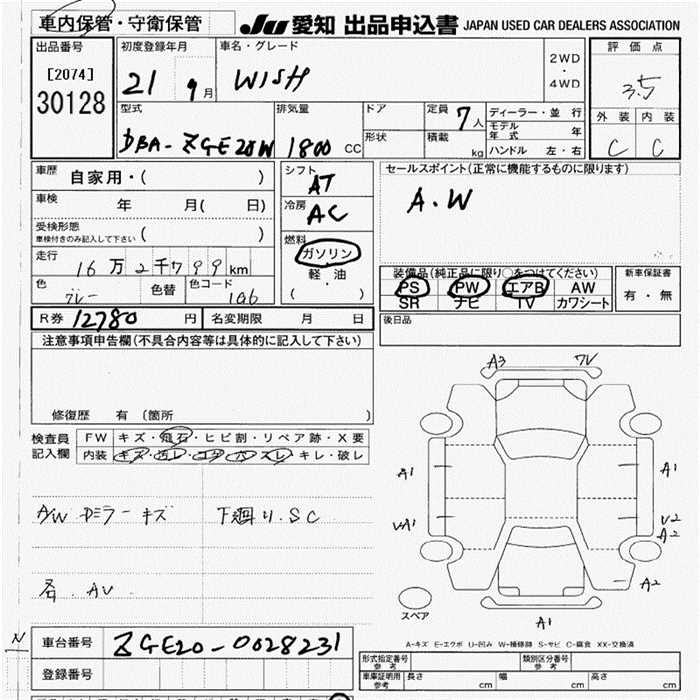 車内保管・守衛保管 JU 愛知 出品申込書 JAPAN USED CAR DEALERS ASSOCIATION
出品番号 初度登録年月 車名・グレード 評価点
[2074] 21 9月 WISH 2WD・4WD 3.5
30128 外装 内装
型式 排気量 ドア 定員 7人 ディーラー・並行 C C
モデル年式 年
DBA-ZGE20W 1800CC 形状 積載 kg ハンドル 左・右
車歴 自家用・( ) シフト AT セールスポイント(正常に機能するものに限ります)
車検 年 月( 日) 冷房 AC A.W
受検形態 車検付きのみ記入して下さい ( ) 燃料
走行 16万2千799km ガソリン
軽油 装備品(純正品に限り○をつけてください) 新車保証書
色 グレー 色替 色コード 1G6 ( ・ ) PS PW エアB AW 有・無
SR ナビ TV カワシート
R券 12780円 名変期限 月 日 後日品
注意事項申告欄(不具合内容等は具体的に記入して下さい)
A3
修復歴 有 (箇所
検査員記入欄 FW キズ・飛石・ヒビ割・リペア跡・X要
内装 キズ・汚レ・コゲ・穴・スレ・キレ・破レ
A1 A1
A/W Dミラーキズ 下廻り.SC
A2
各.AU A2
スペア
A1
N
車台番号 ZGE20-0028231
A-キズ E-エクボ U-凹み W-補修跡 S-サビ C-腐食 XX-交換済
登録番号 形式指定番号 参考 類別区分番号 参考
車庫証明用 参考 長さ cm 幅 cm 高さ cm